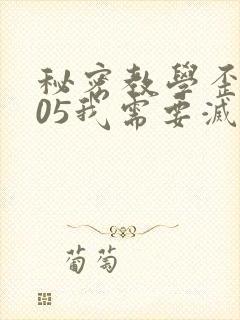 秘密教學歪
05我需要滅
葡萄